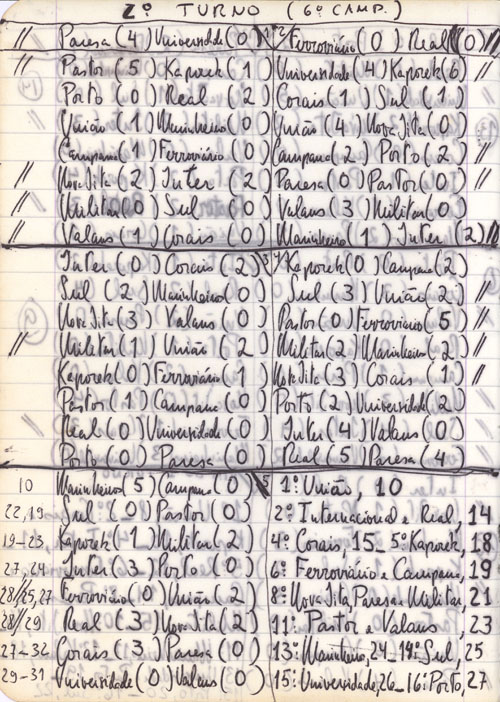 2º TURNO (6º CAMP.)
// Paresa (4) Universidade (0) 1
// Pastor (5) Kaporek (1)
Porto (0) Real (2)
União (1) Marinheiro (0)
Campano (1) Ferroviário (0)
// NovaJita (2) Inter (2)
// Militar (0) Sul (0)
// Valans (1) Corais (0)
2 Ferroviário (0) Real (0) //
Universidade (4) Kaporek (6) //
Corais (1) Sul (1)
União (4) NovaJita (0)
Campano (2) Porto (2) //
Paresa (0) Pastor (0) //
Valans (3) Militar (0)
Marinheiro (1) Inter (2) //
Inter (0) Corais (2) 3
Sul (2) Marinheiro (0)
NovaJita (3) Valans (0)
// Militar (1) União (2)
Kaporek (0) Ferroviário (1)
Pastor (1) Campano (0)
Real (0) Universidade (0)
Porto (0) Paresa (0)
4 Kaporek (0) Campano (2)
Sul (3) União (2) //
Pastor (0) Ferroviário (5) //
Militar (2) Marinheiro (2) //
NovaJita (3) Corais (1) //
Porto (2) Universidade (2)
Inter (4) Valans (0)
Real (5) Paresa (4
10 Marinheiro (5) Campano (0) 5
22,19 Sul (0) Pastor (0)
19-23 Kaporek (1) Militar (2)
27,24 Inter (3) Porto (0)
28/25,27 Ferroviário (0) União (2
28/29) Real (3) NovaJita (2)
27-32 Corais (3) Paresa (0)
29-31 Universidade (0) Valans (0)
1º: União, 10
2º: Internacional e Real, 14
4º: Corais, 15 - 5º: Kaporek, 18
6º: Ferroviário e Campano, 19
8º: NovaJita, Paresa e Militar, 21
11º: Pastor e Valans, 23
13º: Marinheiro, 24 - 14º: Sul, 25
15º: Universidade, 26 - 16º: Porto, 27